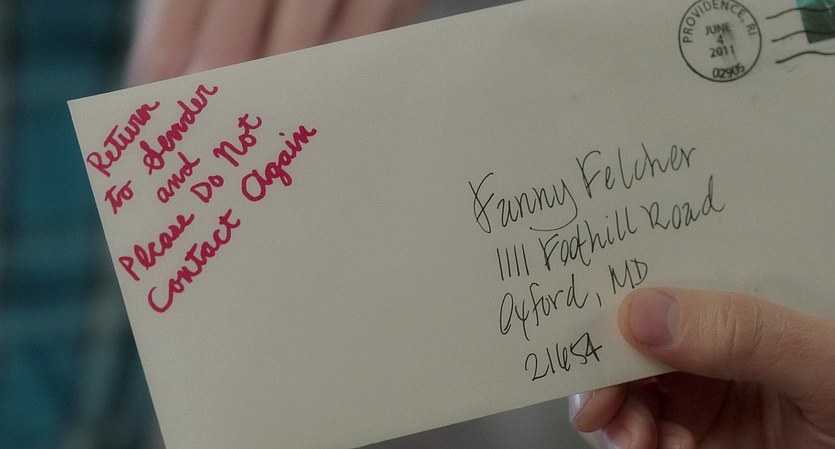 Return
to Sender
and
Please Do Not
Contact Again
PROVIDENCE, RI
JUNE
4
2011
02905
Fanny Felcher
1111 Foothill Road
Oxford, MD
21654